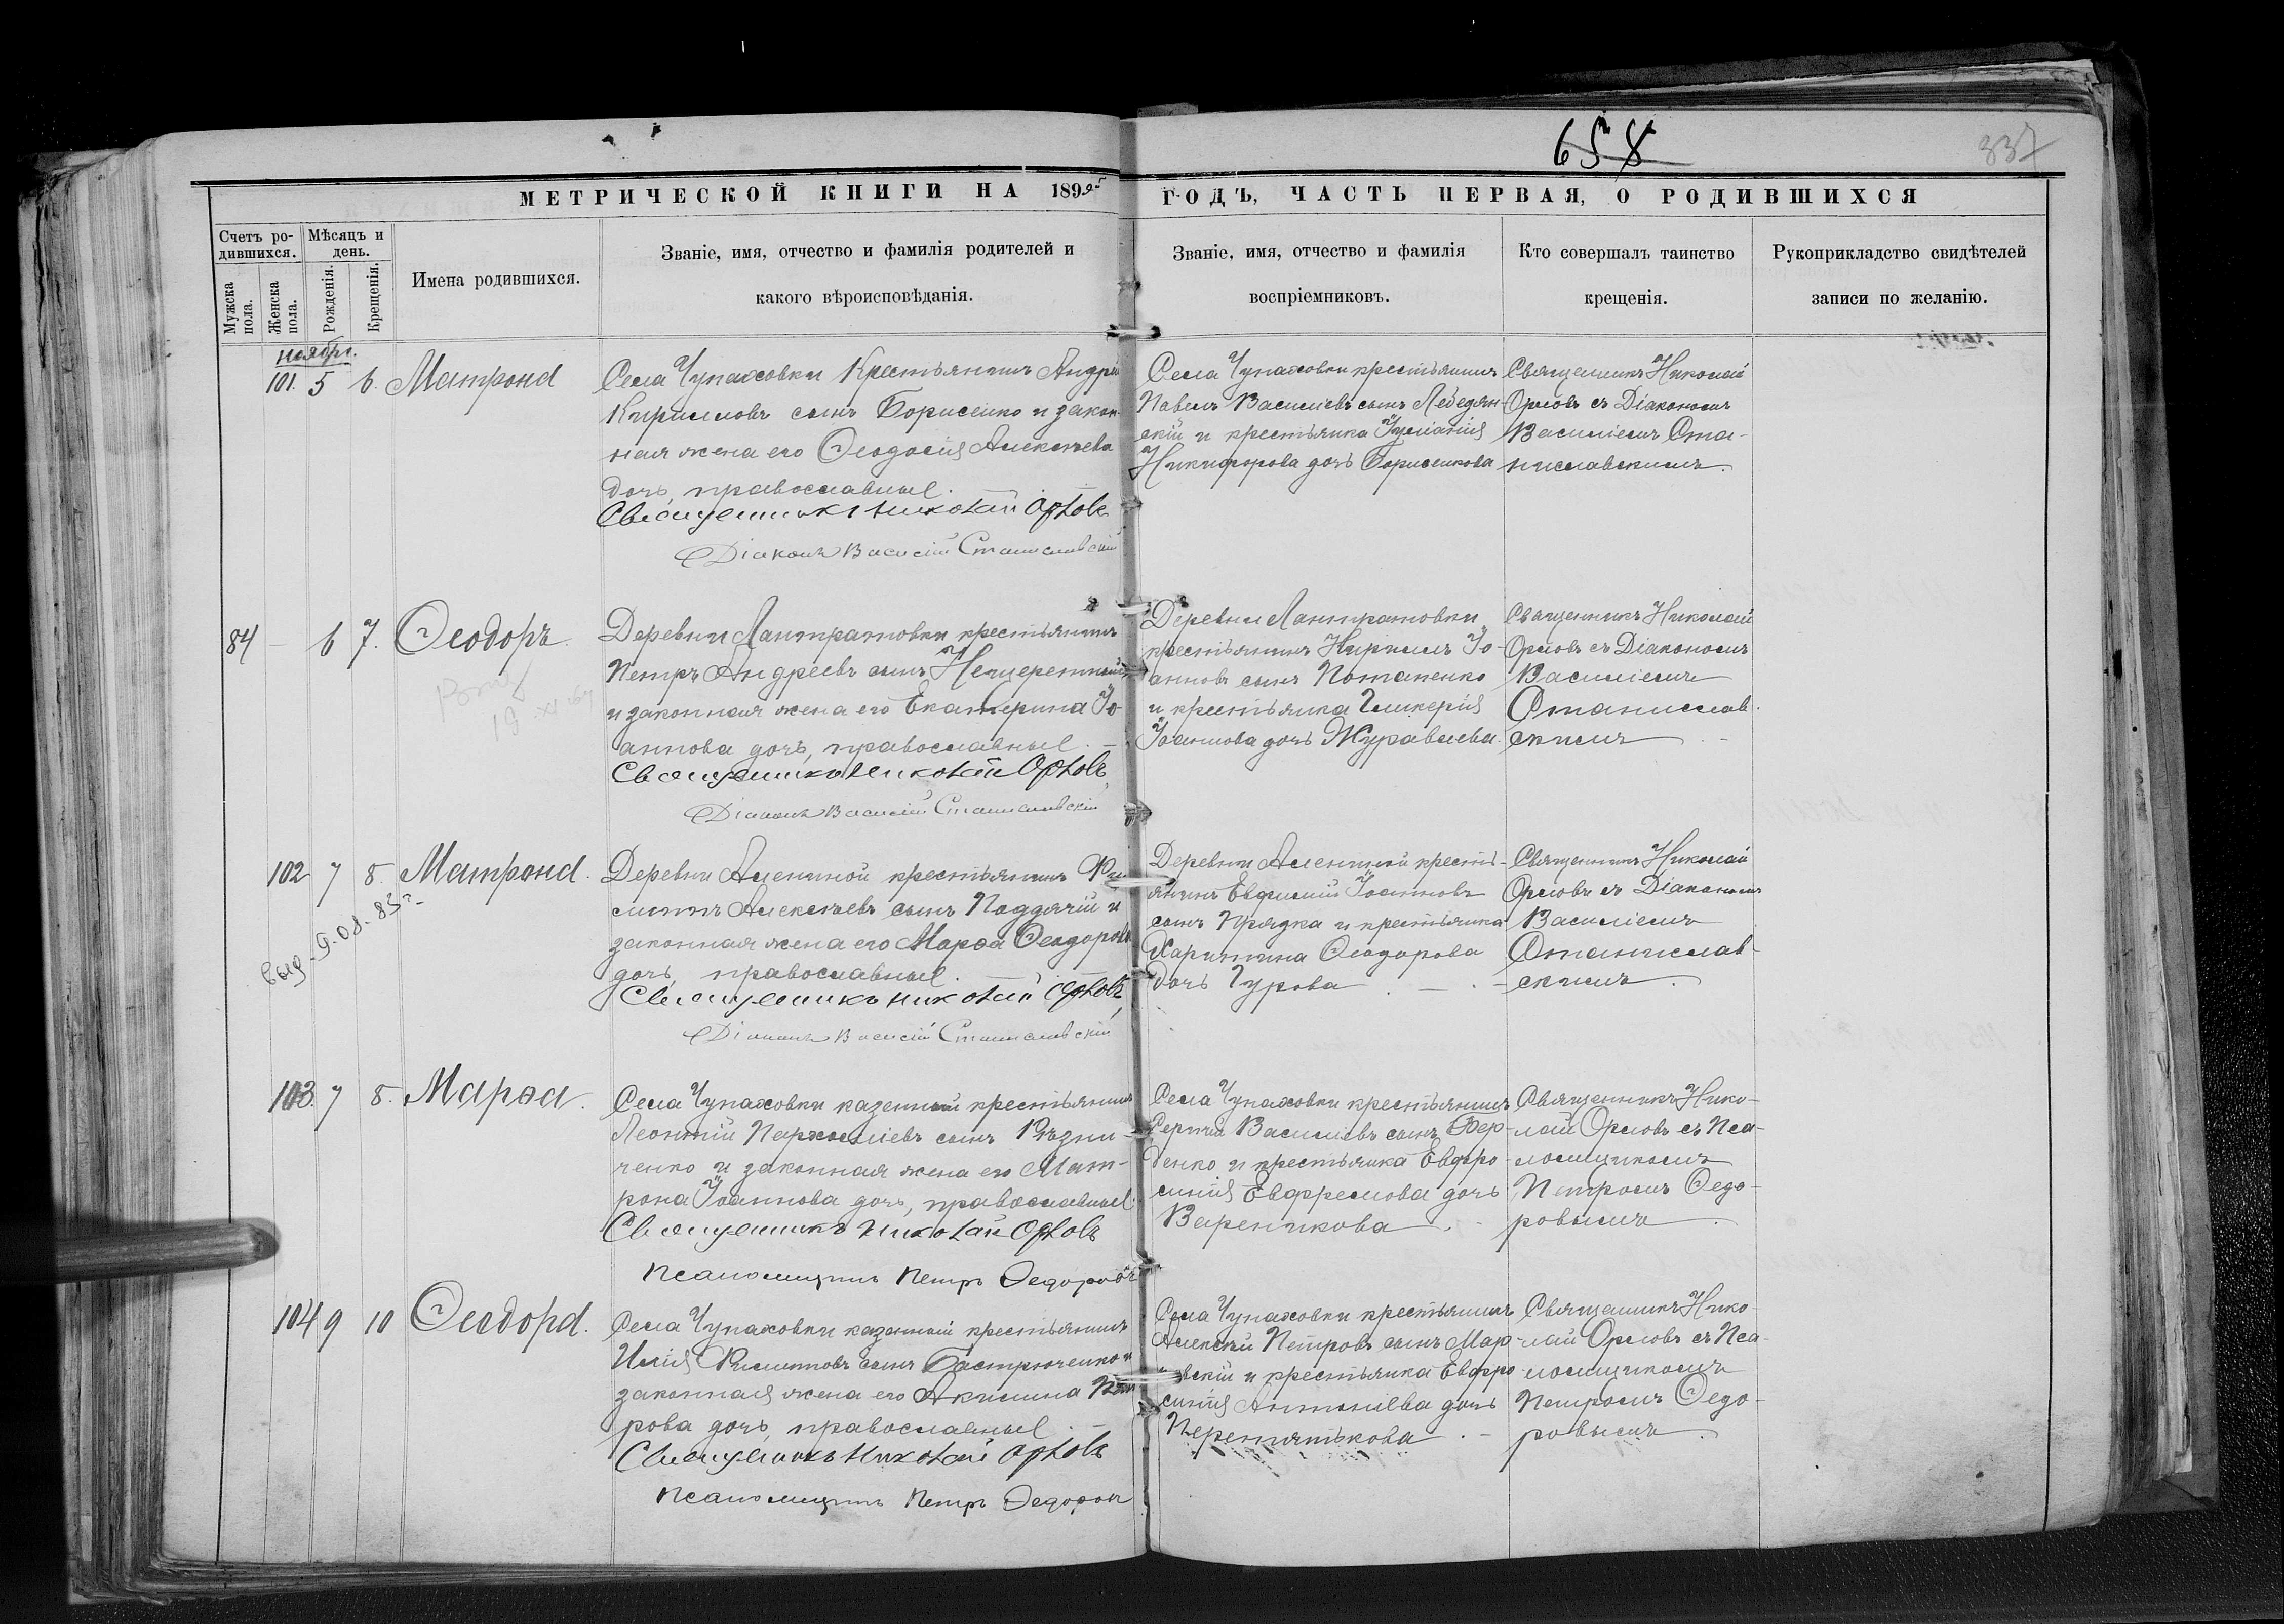 658
337
МЕТРИЧЕСКОЙ КНИГИ НА 1895 ГОДЪ, ЧАСТЬ ПЕРВАЯ, О РОДИВШИХСЯ
Счетъ ро-
дившихся.
Мужска
пола.
Женска
пола.
Мѣсяцъ и
день.
Рожденія.
Крещенія.
Имена родившихся.
Званіе, имя, отчество и фамилія родителей и
какого вѣроисповѣданія.
Званіе, имя, отчество и фамилія
воспріемниковъ.
Кто совершалъ таинство
крещенія.
Рукоприкладство свидѣтелей
записи по желанію.
ноябрь.
101. 5 6. Матрона
Села Чупаховки Крестьянинъ Андрей
Кирилловъ сынъ Борисенко и закон-
ная жена его Ѳеодосія Алексѣева
дочь, православные.
Священникъ Николай Орловъ
Діаконъ Василій Станиславскій
Села Чупаховки крестьянинъ
Павелъ Василіевъ сынъ Лебедян-
скій и крестьянка Іуліанія
Никифорова дочь Борисенкова
Священникъ Николай
Орловъ съ Діакономъ
Василіемъ Ста-
ниславскимъ.
84 - 6 7. Ѳеодоръ.
Деревни Лантратовки крестьянинъ
Петръ Андреевъ сынъ
и законная жена его Екатерина Іо-
аннова дочь, православные.
Священникъ Николай Орловъ
Діаконъ Василій Станиславскій
Деревни Лантратовки
крестьянинъ Кириллъ Іо-
анновъ сынъ Потапенко
и крестьянка Гликерія
Іоаннова дочь Журавлева.
Священникъ Николай
Орловъ съ Діакономъ
Василіемъ
Станислав-
скимъ
102 7 8. Матрона.
выд. 9.08.85г.
Деревни Алениной крестьянинъ Фи-
липпъ Алексѣевъ сынъ Поддячій и
законная жена его Марѳа Ѳеодорова
дочь, православные.
Священникъ Николай Орловъ
Діаконъ Василій Станиславскій
Деревни Алениной кресть-
янинъ Евфимій Іоанновъ
сынъ Прядка и крестьянка
Харитина Ѳеодорова
дочь Гурова
Священникъ Николай
Орловъ съ Діакономъ
Василіемъ
Станислав-
скимъ.
103. 7 8. Марѳа.
Села Чупаховки казенный крестьянинъ
Леонтій сынъ Рѣзни-
ченко и законная жена его Мат-
рона Іоаннова дочь, православные.
Священникъ Николай Орловъ
Псаломщикъ Петръ Ѳедоровъ
Села Чупаховки крестьянинъ
Сергій Василіевъ сынъ
денко и крестьянка Евфро-
синія Евфремова дочь
Вареникова.
Священникъ Нико-
лай Орловъ съ Пса-
ломщикомъ
Петромъ Ѳедо-
ровымъ.
104 9 10 Ѳеодора.
Села Чупаховки казенный крестьянинъ
Илія Филипповъ сынъ Бастрюченко и
законная жена его Акилина Пет-
рова дочь, православные.
Священникъ Николай Орловъ
Псаломщикъ Петръ Ѳедоровъ
Села Чупаховки крестьянинъ
Алексѣй Петровъ сынъ Мар-
евскій и крестьянка Евфро-
синія Антоніева дочь
Перетятькова.
Священникъ Нико-
лай Орловъ съ Пса-
ломщикомъ
Петромъ Ѳедо-
ровымъ.